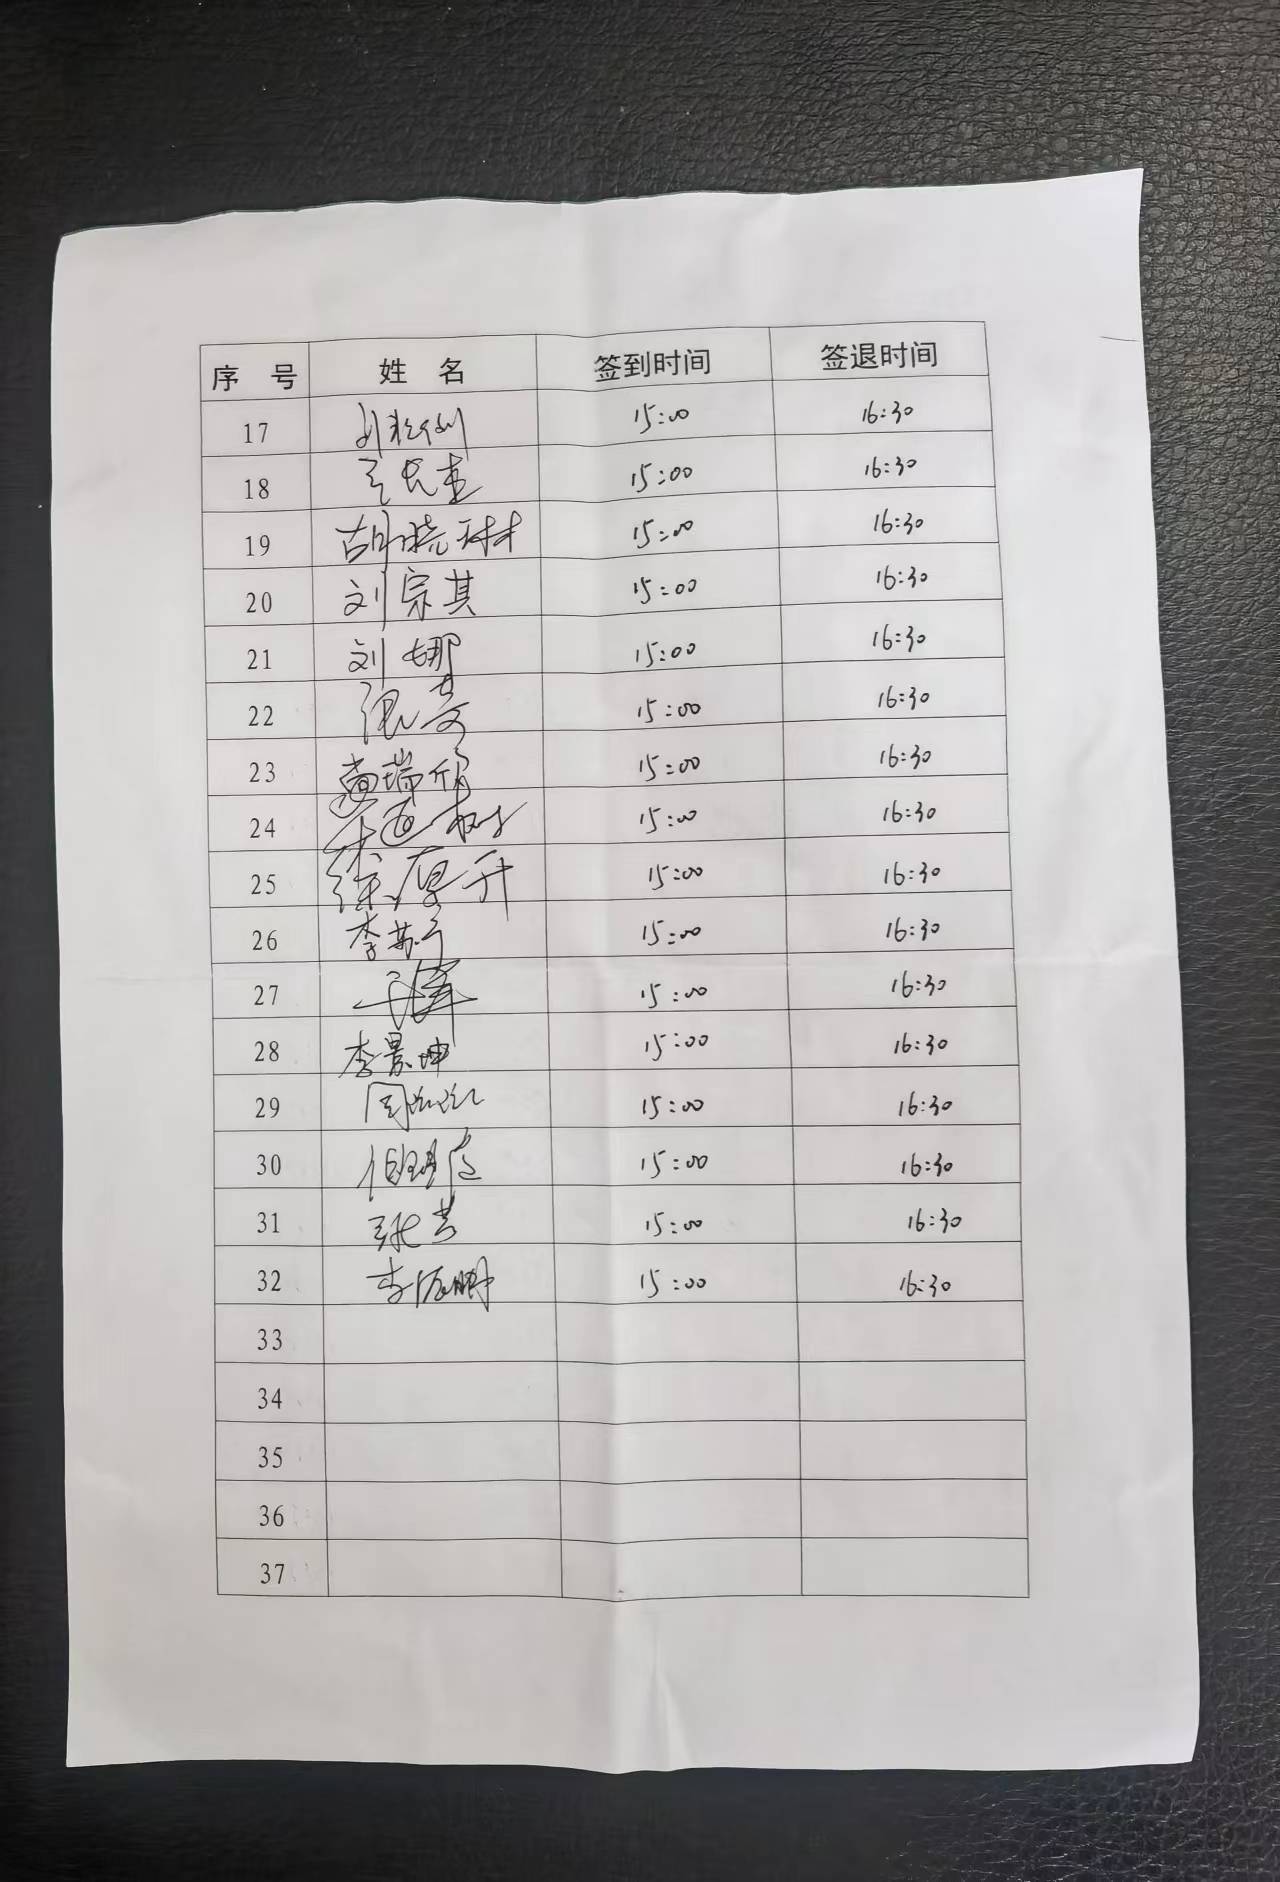 序 号 姓 名 签到时间 签退时间
17 15:00 16:30
18 15:00 16:30
19 胡晓琳 15:00 16:30
20 刘宗其 15:00 16:30
21 刘娜 15:00 16:30
22 15:00 16:30
23 黄瑞欣 15:00 16:30
24 15:00 16:30
25 徐厚升 15:00 16:30
26 李 15:00 16:30
27 15:00 16:30
28 李景坤 15:00 16:30
29 周 15:00 16:30
30 15:00 16:30
31 张芸 15:00 16:30
32 李 鹏 15:00 16:30
33
34
35
36
37